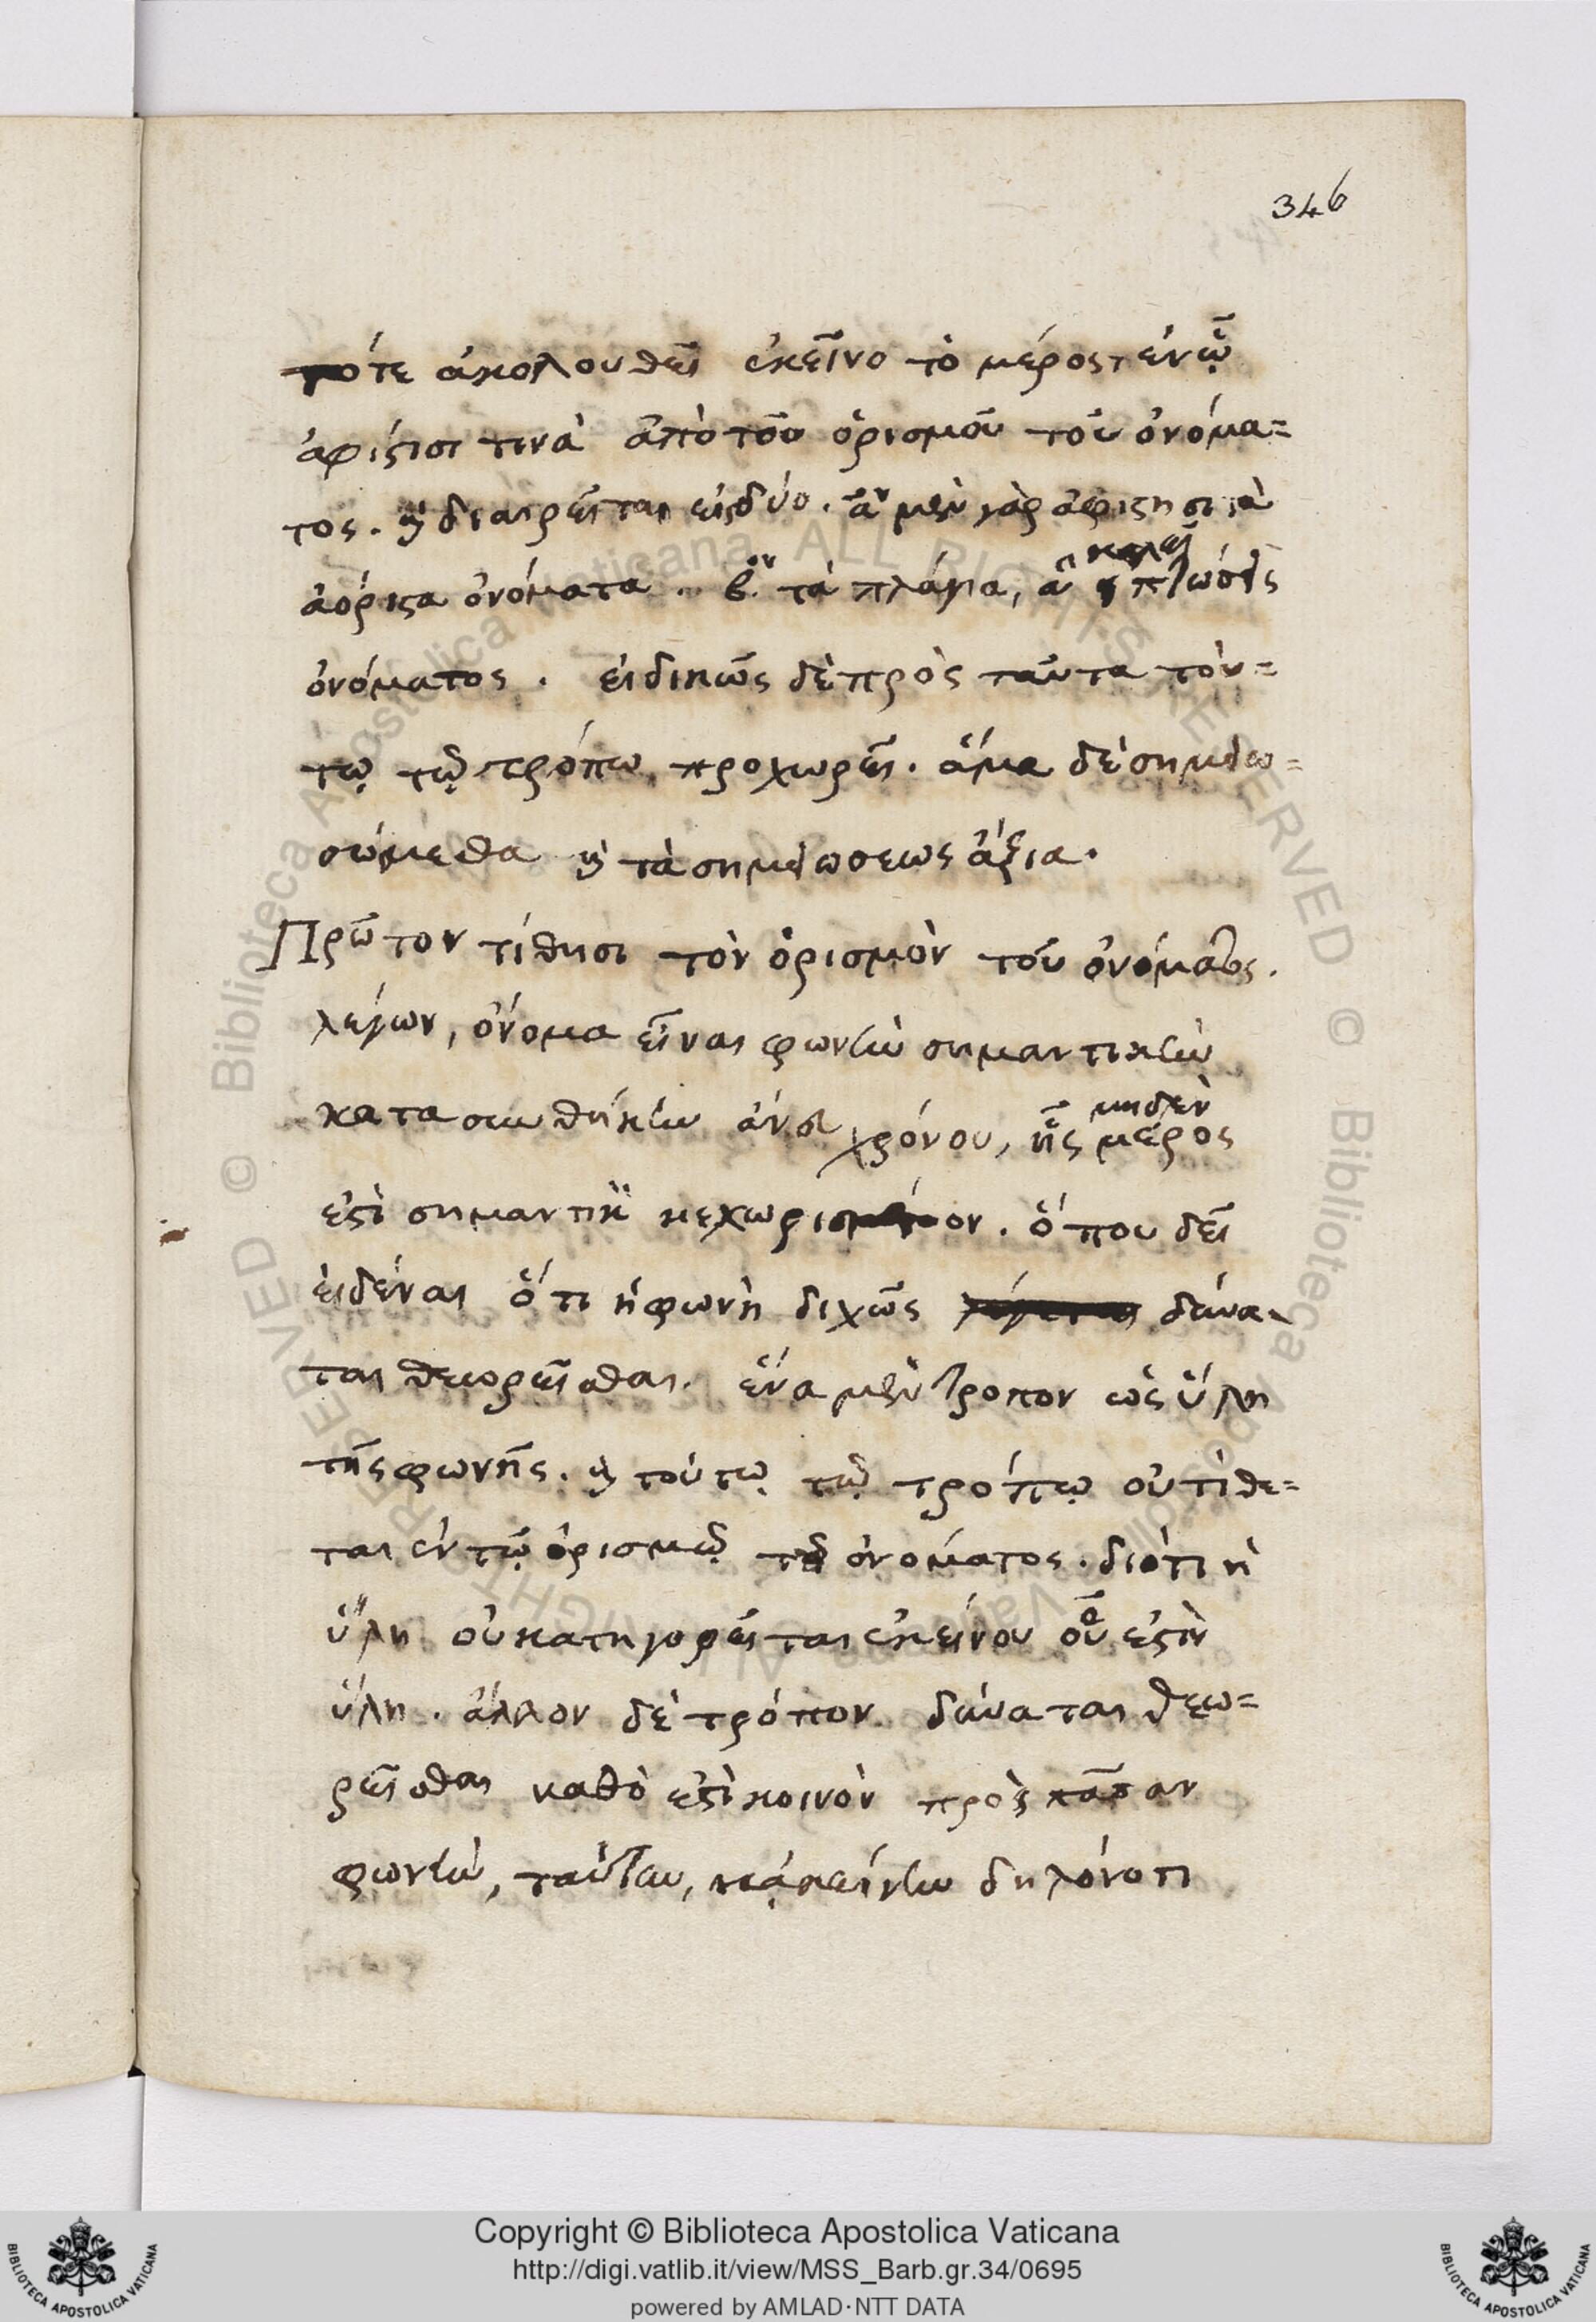 346
τότε ἀκολουθεῖ ἐκεῖνο τὸ μέρος, ἐν ᾧ
ἀφίστησι τινὰ ἀπὸ τοῦ ὁρισμοῦ τοῦ ὀνόμα=
τος. ϗ διαιρεῖται εἰς δύο. αον μὲν γὰρ ἀφίστησι τὰ
ἀόριστα ὀνόματα. β.ον τὰ πλάγια, ἃ καλεῖ πτώσεις
ὀνόματος. εἰδικῶς δὲ πρὸς ταῦτα τού=
τῳ τῷ τρόπῳ προχωρεῖ. ἅμα δὲ σημειω=
σώμεθα ϗ τὰ σημειώσεως ἄξια.
Πρῶτον τίθησι τὸν ὁρισμὸν τοῦ ὀνόματος.
λέγων, ὄνομα εἶναι φωνὴν σημαντικὴν
κατα συνθήκην ἄνευ χρόνου, ἧς μηδὲν μέρος
ἐστὶ σημαντικὸν κεχωρισμένον. ὅπου δεῖ
εἰδέναι ὅτι ἡ φωνὴ διχῶς δύνα-
ται θεωρεῖσθαι. ἕνα μὲν τρόπον ὡς ὕλη
τῆς φωνῆς. ϗ τούτῳ τῷ τρόπῳ οὐ τίθε=
ται ἐν τῷ ὁρισμῷ τοῦ ὀνόματος. διότι ἡ
ὕλη οὐ κατηγορεῖται ἐκείνου οὗ ἐστὶν
ὕλη. ἄλλον δὲ τρόπον δύναται θεω=
ρεῖσθαι καθὸ ἐστὶ κοινὸν πρὸς πᾶσαν
φωνὴν, ταύτην, κᾀκείνην δηλόνοτι
Copyright © Biblioteca Apostolica Vaticana
http://digi.vatlib.it/view/MSS_Barb.gr.34/0695
powered by AMLAD·NTT DATA